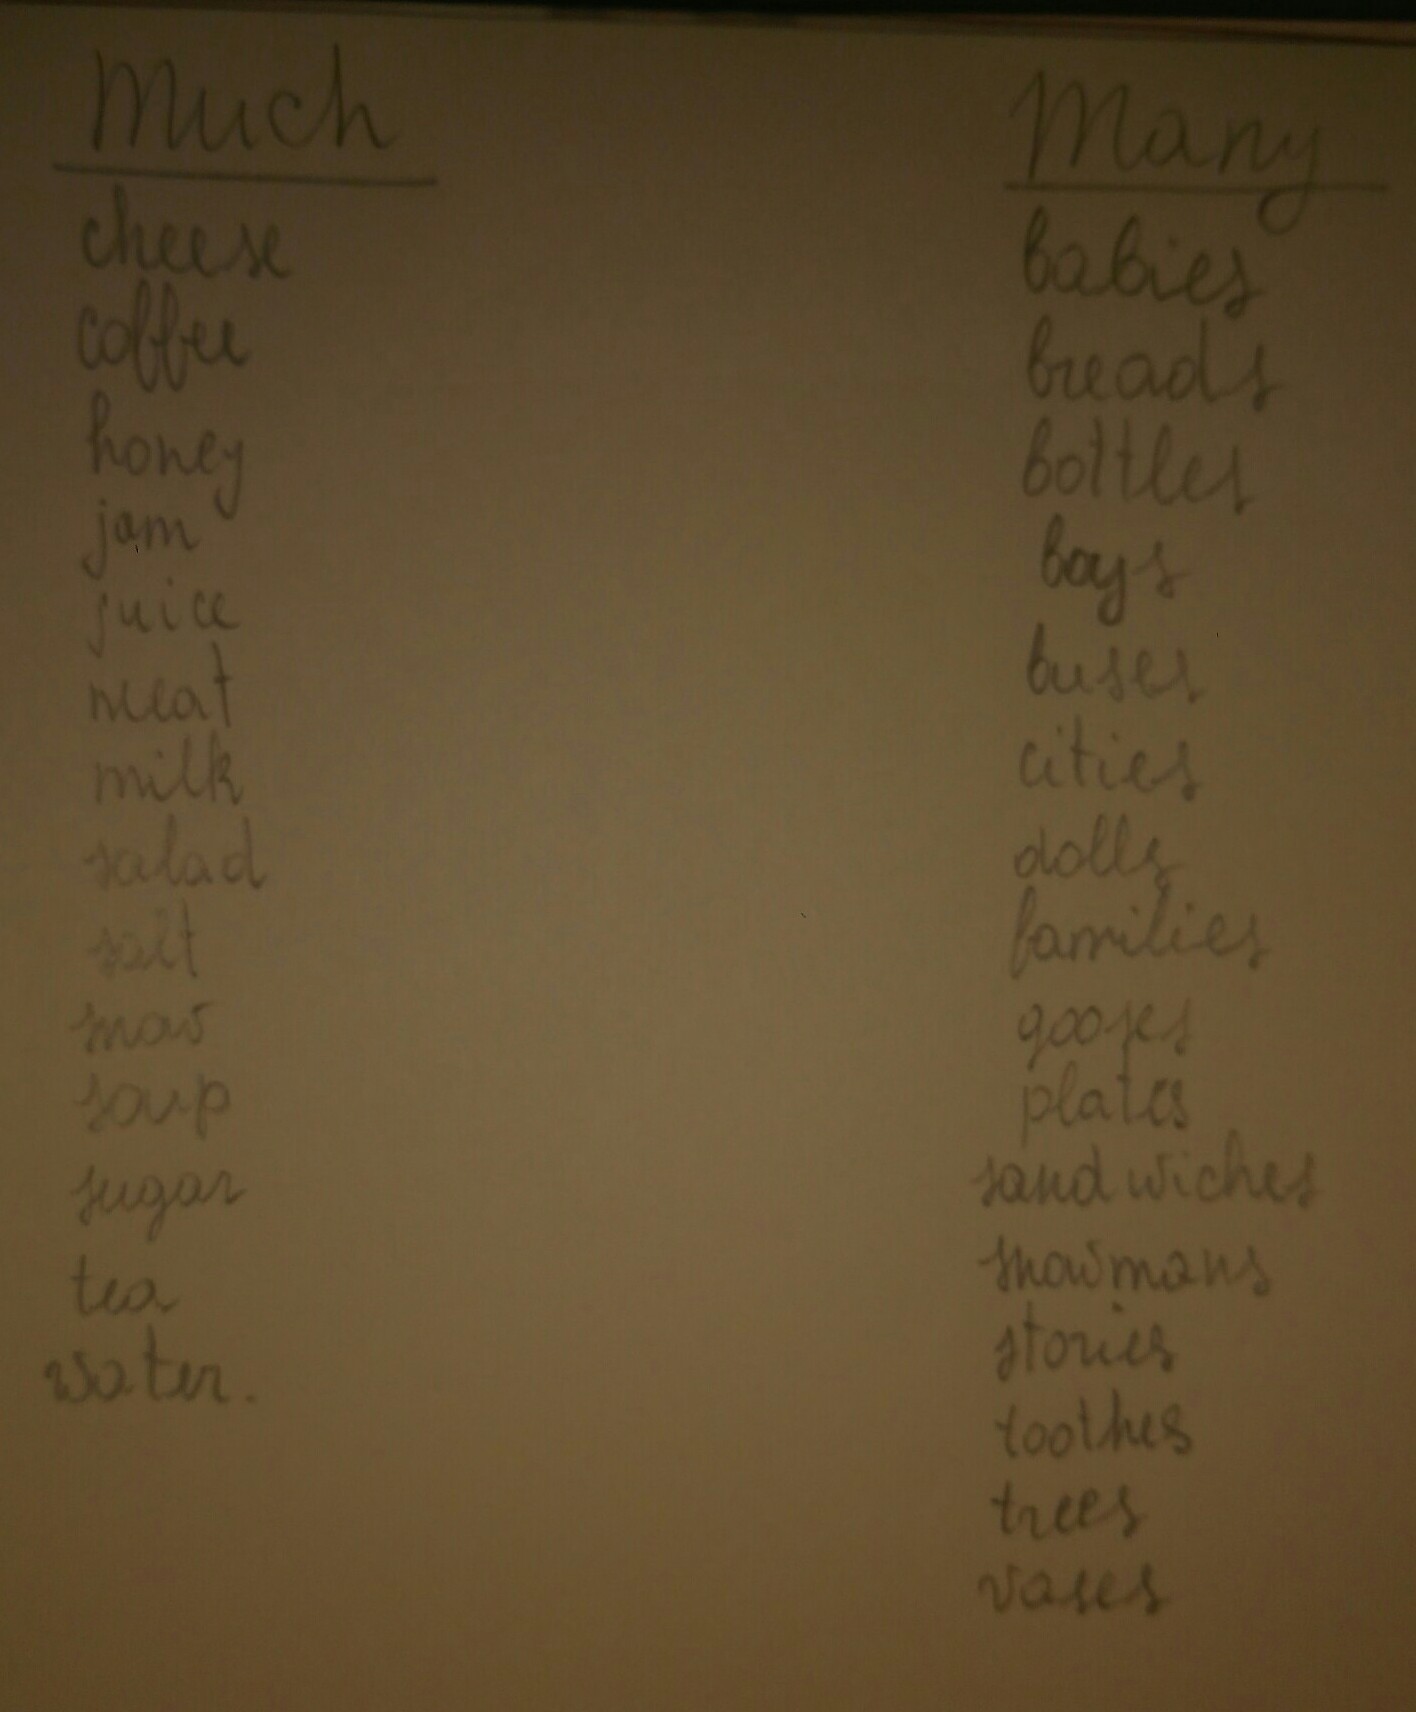 Much
cheese
coffee
honey
jam
juice
meat
milk
salad
salt
snow
soup
sugar
tea
water.
Many
babies
breads
bottles
boys
buses
cities
dolls
families
gooses
plates
sandwiches
snowmans
stories
toothes
trees
vases